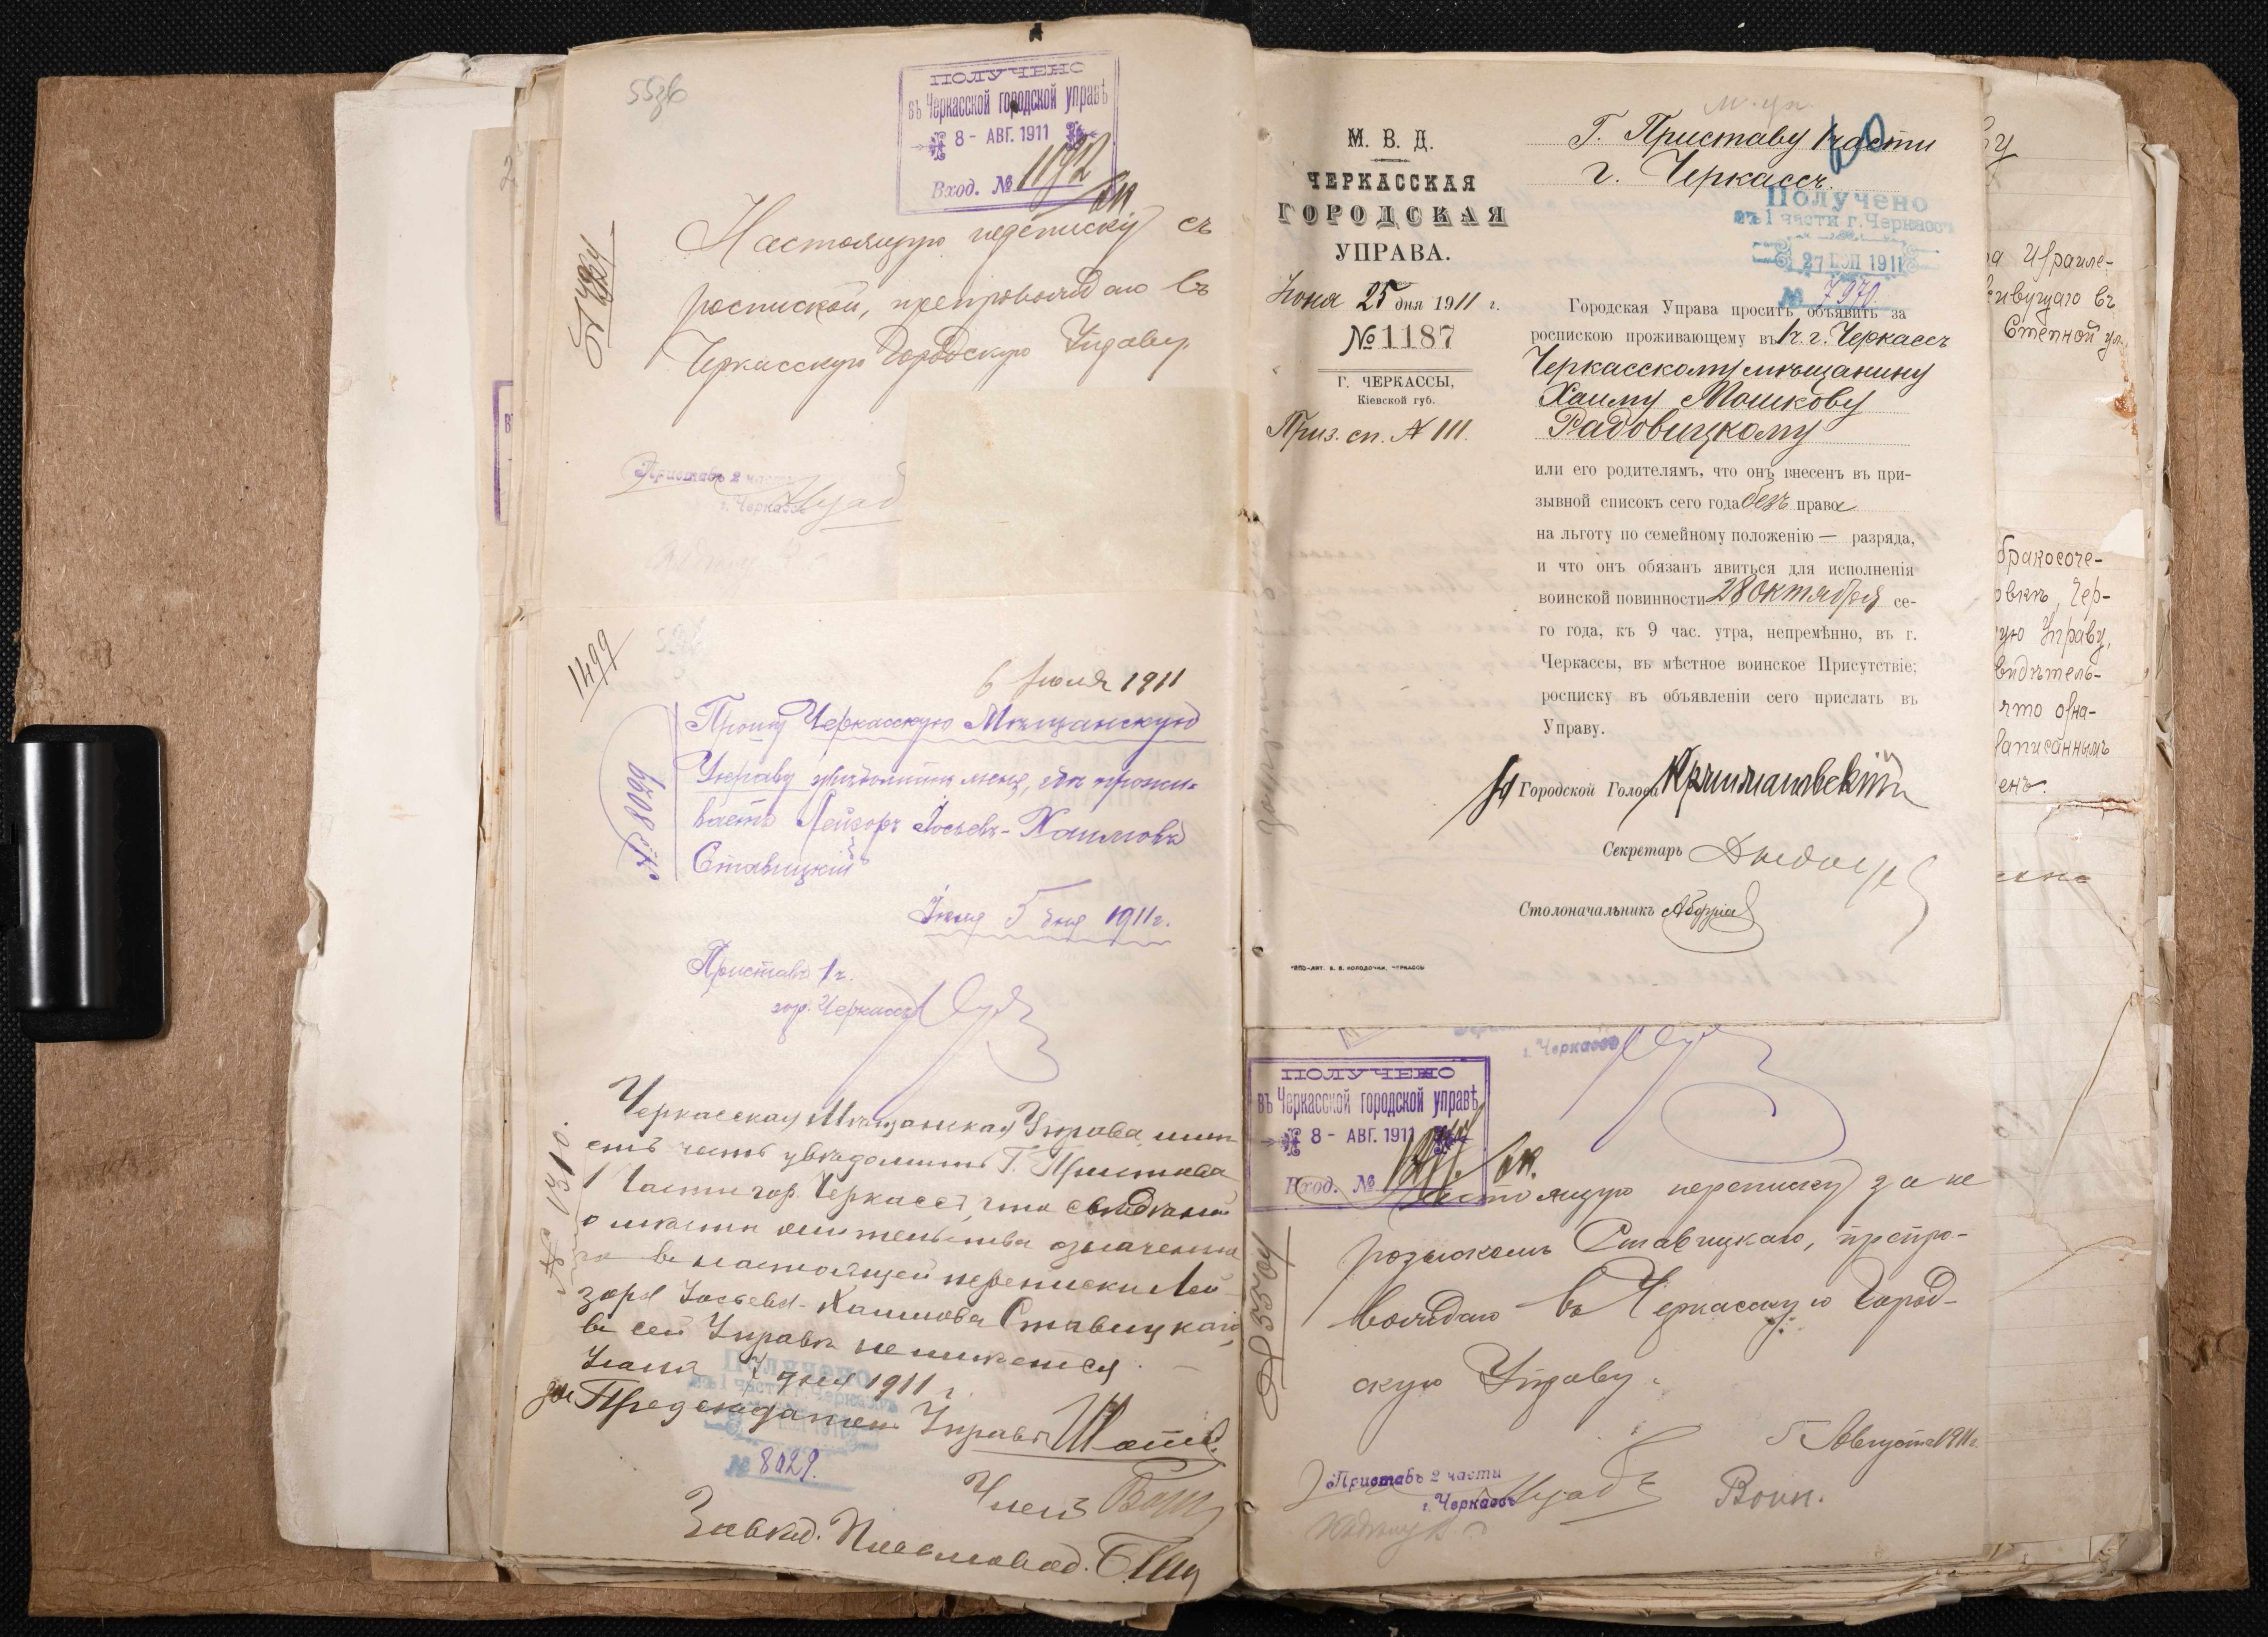 ПОЛУЧЕНО
въ Черкасской городской управѣ
8 - АВГ. 1911
Вход. №
Настоящую переписку съ
роспиской, препровождаю въ
Черкасскую Городскую Управу.
Приставъ 2 части
г. Черкассъ
1499
6 Июля 1911
№ 8029
Прошу Черкасскую Мѣщанскую
Управу увѣдомить меня, гдѣ прожи-
ваетъ Лейзоръ Іосьевъ-Хаимовъ
Ставицкій
Іюля 5 дня 1911 г.
Приставъ 1 ч.
гор. Черкассъ
№ 1310.
Черкасская Мѣщанская Управа имѣ
етъ честь увѣдомить Г. Пристава
1 Части гор. Черкассъ, что свѣдѣній
о мѣстѣ жительства означенна
го въ настоящей переписки Лей
зора Іосьева-Хаимова Ставицкаго,
въ сей Управѣ не имѣется.
Іюля 7 дня 1911 г.
за Предсѣдателя Управы
Членъ
Завѣд. Письмовод.
Получено
въ 1 части г. Черкассъ
№ 8029.
М. В. Д.
ЧЕРКАССКАЯ
ГОРОДСКАЯ
УПРАВА.
Іюня 25 дня 1911 г.
№ 1187
Г. ЧЕРКАССЫ,
Кіевской губ.
Приз. сп. № 111.
Г. Приставу 1 части
г. Черкассъ.
Получено
въ 1 части г. Черкассъ
27 ІЮН 1911
№ 7970.
Городская Управа проситъ объявить за
роспискою проживающему въ 1 ч. г. Черкассъ
Черкасскому мѣщанину
Хаиму Мошкову
Радовицкому
или его родителямъ, что онъ внесенъ въ при-
зывной списокъ сего года безъ права
на льготу по семейному положенію — разряда,
и что онъ обязанъ явиться для исполненія
воинской повинности 28 октября се-
го года, къ 9 час. утра, непремѣнно, въ г.
Черкассы, въ мѣстное воинское Присутствіе;
росписку въ объявленіи сего прислать въ
Управу.
Городской Голова
Секретарь
Столоначальникъ
г. Черкассъ
ПОЛУЧЕНО
въ Черкасской городской управѣ
8 - АВГ. 1911
Вход. №
№ 5504
Настоящую переписку за не
розыскомъ Ставицкаго, препро-
вождаю въ Черкасскую Город-
скую Управу.
5 Августа 1911 г.
Приставъ 2 части
г. Черкассъ
Воин.
Израиле-
живущаго въ
Степной ул.
бракосоче-
Чер-
Управу,
видѣтель-
что озна-
записаннымъ